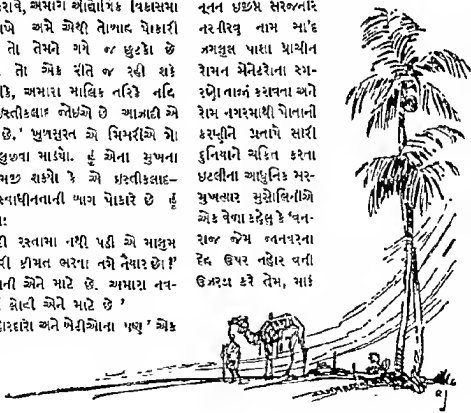 કરાવે, અમારા ઔદ્યોગિક વિકાસમા
અમે એથી તોબાહ પોકારી
તો તેમને ગમે જ છુટકો છે
તો એક રીતે જ રહી શકે
કે, અમારા માલિક તરિકે નહિ
ઇસ્તીકલાલ જોઇએ છે આઝાદી એ
છે.' ખુબસુરત એ મિસરીએ
માડયો. હું એના મુખના
શક્યો કે એ ઇસ્તીકલાલ–
સ્વાધીનતાની બાગ પોકારે છે હું
રસ્તામા નથી પડી એ માસુમ
કીમત ભરવા તમે તૈયાર છો?'
એને માટે છે. અમારા નવ–
એને માટે છે '
અને ખેડીઓના પણ ' એક
નૂતન ઇજીપ્ત સરજનાર
નરવીરનુ નામ સા'દ
ઝગલુલ પાશા પ્રાચીન
રોમન સેનેટરોના સ્મ–
રણો તાજાં કરાવતા અને
રોમ નગરમાથી પોતાની
કરણીને પ્રતાપે સારી
દુનિયાને ચકિત કરતા
ઇટલીના આધુનિક સર–
મુખત્યાર મુસોલિનીએ
એક વેળા કહેલુ કે 'વન–
રાજ જેમ જાનવરના
દેહ ઉપર નહોર વતી
ઉઝરડા કરે તેમ, મારૂં